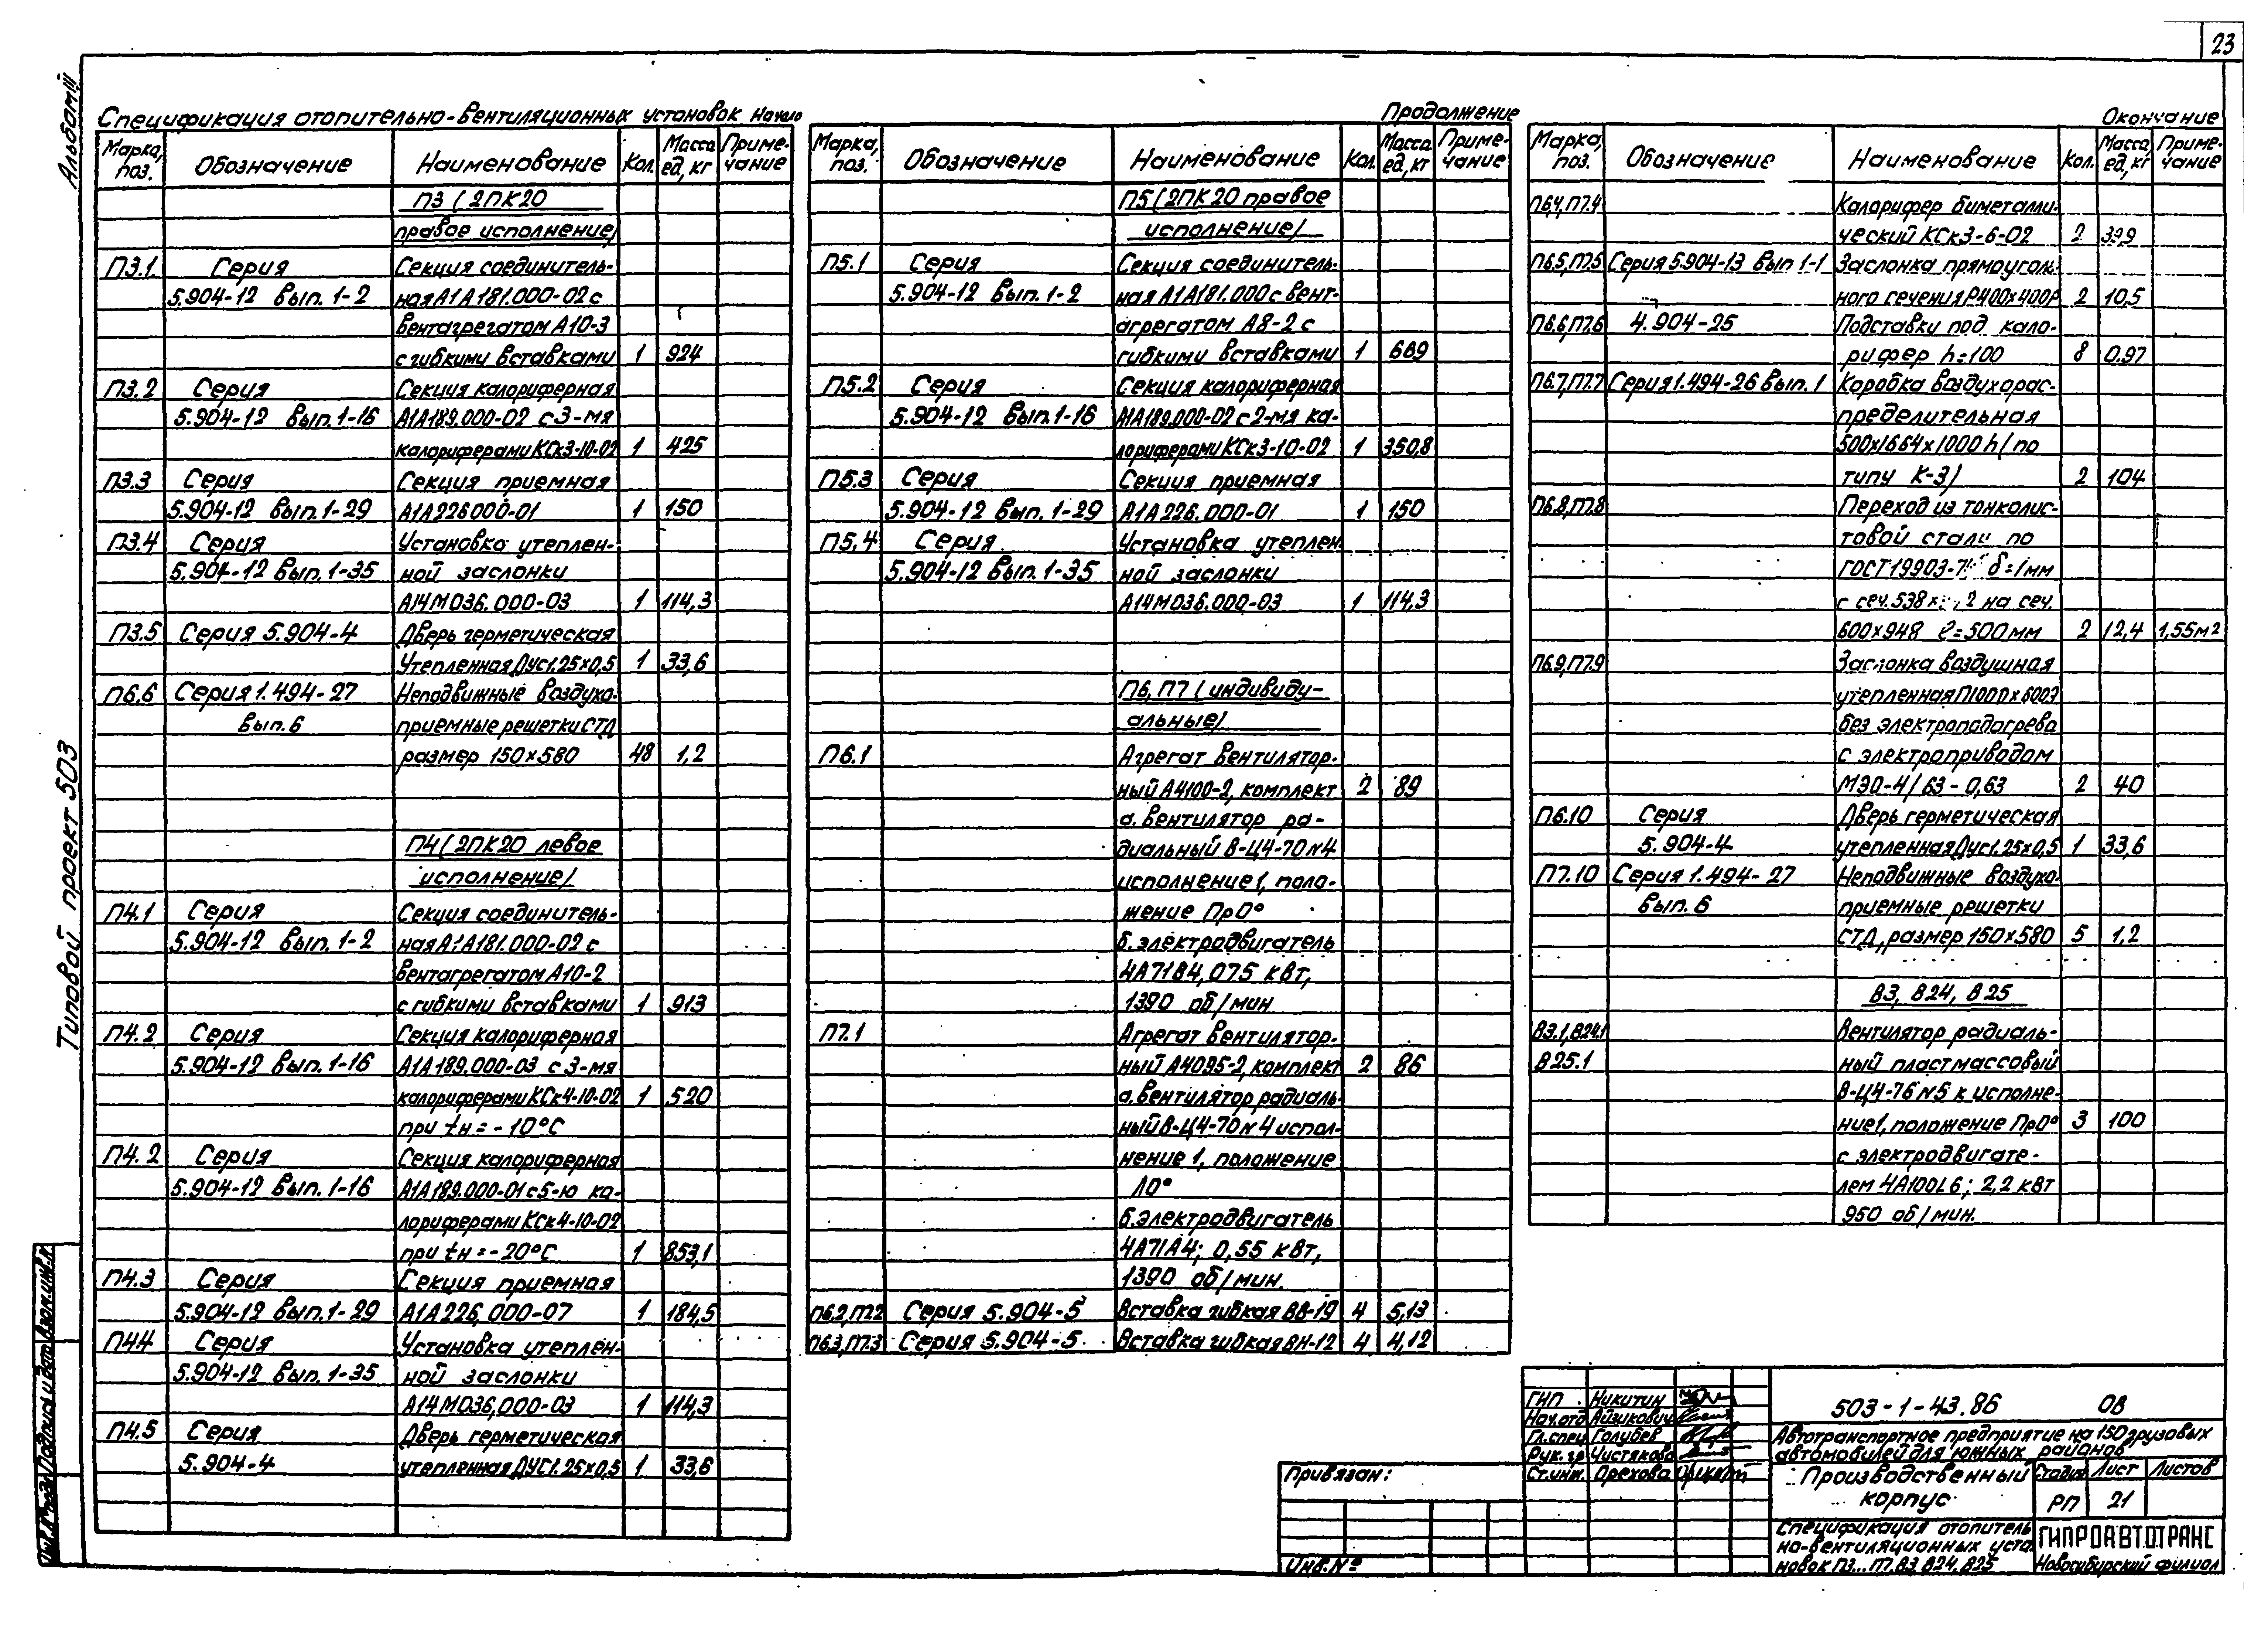 23
Альбом III
Типовой проект 503
Спецификация отопительно-вентиляционных установок Начало
Марка, поз. Обозначение Наименование Кол. Масса ед, кг Примечание
П3 (2ПК20
правое исполнение)
П3.1 Серия Секция соединитель-
5.904-12 вып. 1-2 ная А1А181.000-02 с
вентагрегатом А10-3
с гибкими вставками 1 924
П3.2 Серия Секция калориферная
5.904-12 вып. 1-16 А1А189.000-02 с 3-мя
калориферами КСк3-10-02 1 425
П3.3 Серия Секция приемная
5.904-12 вып. 1-29 А1А226000-01 1 150
П3.4 Серия Установка утеплен-
5.904-12 вып. 1-35 ной заслонки
А14М036.000-03 1 114,3
П3.5 Серия 5.904-4 Дверь герметическая
Утепленная Дус1.25х0,5 1 33,6
П6.6 Серия 1.494-27 Неподвижные воздухо-
вып. 6 приемные решетки СТД
размер 150×580 48 1,2
П4 (2ПК20 левое
исполнение)
П4.1 Серия Секция соединитель-
5.904-12 вып. 1-2 ная А1А181.000-02 с
вентагрегатом А10-2
с гибкими вставками 1 913
П4.2 Серия Секция калориферная
5.904-12 вып. 1-16 А1А189.000-03 с 3-мя
калориферами КСк4-10-02 1 520
при tн = -10°С
П4.2 Серия Секция калориферная
5.904-12 вып. 1-16 А1А189.000-01 с 5-ю ка-
лориферами КСк4-10-02
при tн = -20°С 1 853,1
П4.3 Серия Секция приемная
5.904-12 вып. 1-29 А1А226,000-07 1 184,5
П4.4 Серия Установка утеплен-
5.904-12 вып. 1-35 ной заслонки
А14М036,000-03 1 114,3
П4.5 Серия Дверь герметическая
5.904-4 утепленная ДУС1.25х0,5 1 33,6
Продолжение
Марка, поз. Обозначение Наименование Кол. Масса ед, кг Примечание
П5 (2ПК20 правое
исполнение)
П5.1 Серия Секция соединитель-
5.904-12 вып. 1-2 ная А1А181.000 с вент-
агрегатом А8-2 с
гибкими вставками 1 689
П5.2 Серия Секция калориферная
5.904-12 вып. 1-16 А1А189.000-02 с 2-мя ка-
лориферами КСк3-10-02 1 350,8
П5.3 Серия Секция приемная
5.904-12 вып. 1-29 А1А226.000-01 1 150
П5.4 Серия Установка утеплен
5.904-12 вып. 1-35 ной заслонки
А14М036.000-03 1 114,3
П6, П7 (индивиду-
альные)
П6.1 Агрегат вентилятор-
ный А4100-2, комплект 2 89
а. вентилятор ра-
диальный В-Ц4-70 №4
исполнение 1, поло-
жение Пр0°
б. электродвигатель
4А71В4, 0,75 квт,
1390 об/мин
П7.1 Агрегат вентилятор-
ный А4095-2, комплект 2 86
а. вентилятор радиаль-
ный В-Ц4-70 №4 испол-
нение 1, положение
Л0°
б. электродвигатель
4А71А4; 0,55 квт,
1390 об/мин.
П6.2, П7.2 Серия 5.904-5 Вставка гибкая ВВ-19 4 5,13
П6.3, П7.3 Серия 5.904-5. Вставка гибкая ВН-12 4 4,12
Окончание
Марка, поз. Обозначение Наименование Кол. Масса ед, кг Примечание
П6.4, П7.4 Калорифер биметалли-
ческий КСк3-6-02 2 39,9
П6.5, П7.5 Серия 5.904-13 вып 1-1 Заслонка прямоуголь-
ного сечения Р400х400Р 2 10,5
П6.6, П7.6 4.904-25 Подставки под кало-
рифер h=100 8 0.97
П6.7, П7.7 Серия 1.494-26 вып. 1 Коробка воздухорас-
пределительная
500х1664х1000 h (по
типу К-3) 2 104
П6.8, П7.8 Переход из тонколис-
товой стали по
ГОСТ 19903- δ=1мм
с сеч. 538х на сеч.
600×948 ℓ=500мм 2 12,4 1,55м2
П6.9, П7.9 Заслонка воздушная
утепленная П1000х600Э
без электроподогрева
с электроприводом
МЭО-4/63-0,63 2 40
П6.10 Серия Дверь герметическая
5.904-4 утепленная Дус1.25х0,5 1 33,6
П7.10 Серия 1.494-27 Неподвижные воздухо-
вып. 6 приемные решетки
СТД, размер 150×580 5 1,2
В3, В24, В25
В3.1, В24.1 Вентилятор радиаль-
В25.1 ный пластмассовый
В-Ц4-76 №5 к исполне-
ние 1, положение Пр0° 3 100
с электродвигате-
лем 4А100L6; 2,2 квт
950 об/мин.
ГИП Никитин
Нач.отд Айзикович
Гл.спец Голубев
Рук.гр Чистякова
Ст.инж. Орехова
Привязан:
Инв. №
503-1-43.86 ОВ
Автотранспортное предприятие на 150 грузовых
автомобилей для южных районов
Производственный
корпус
Стадия Лист Листов
РП 21
Спецификация отопитель
но-вентиляционных уста
новок П3...П7, В3, В24, В25
ГИПРОАВТОТРАНС
Новосибирский филиал
Инв.№ подл. Подпись и дата Взам.инв.№